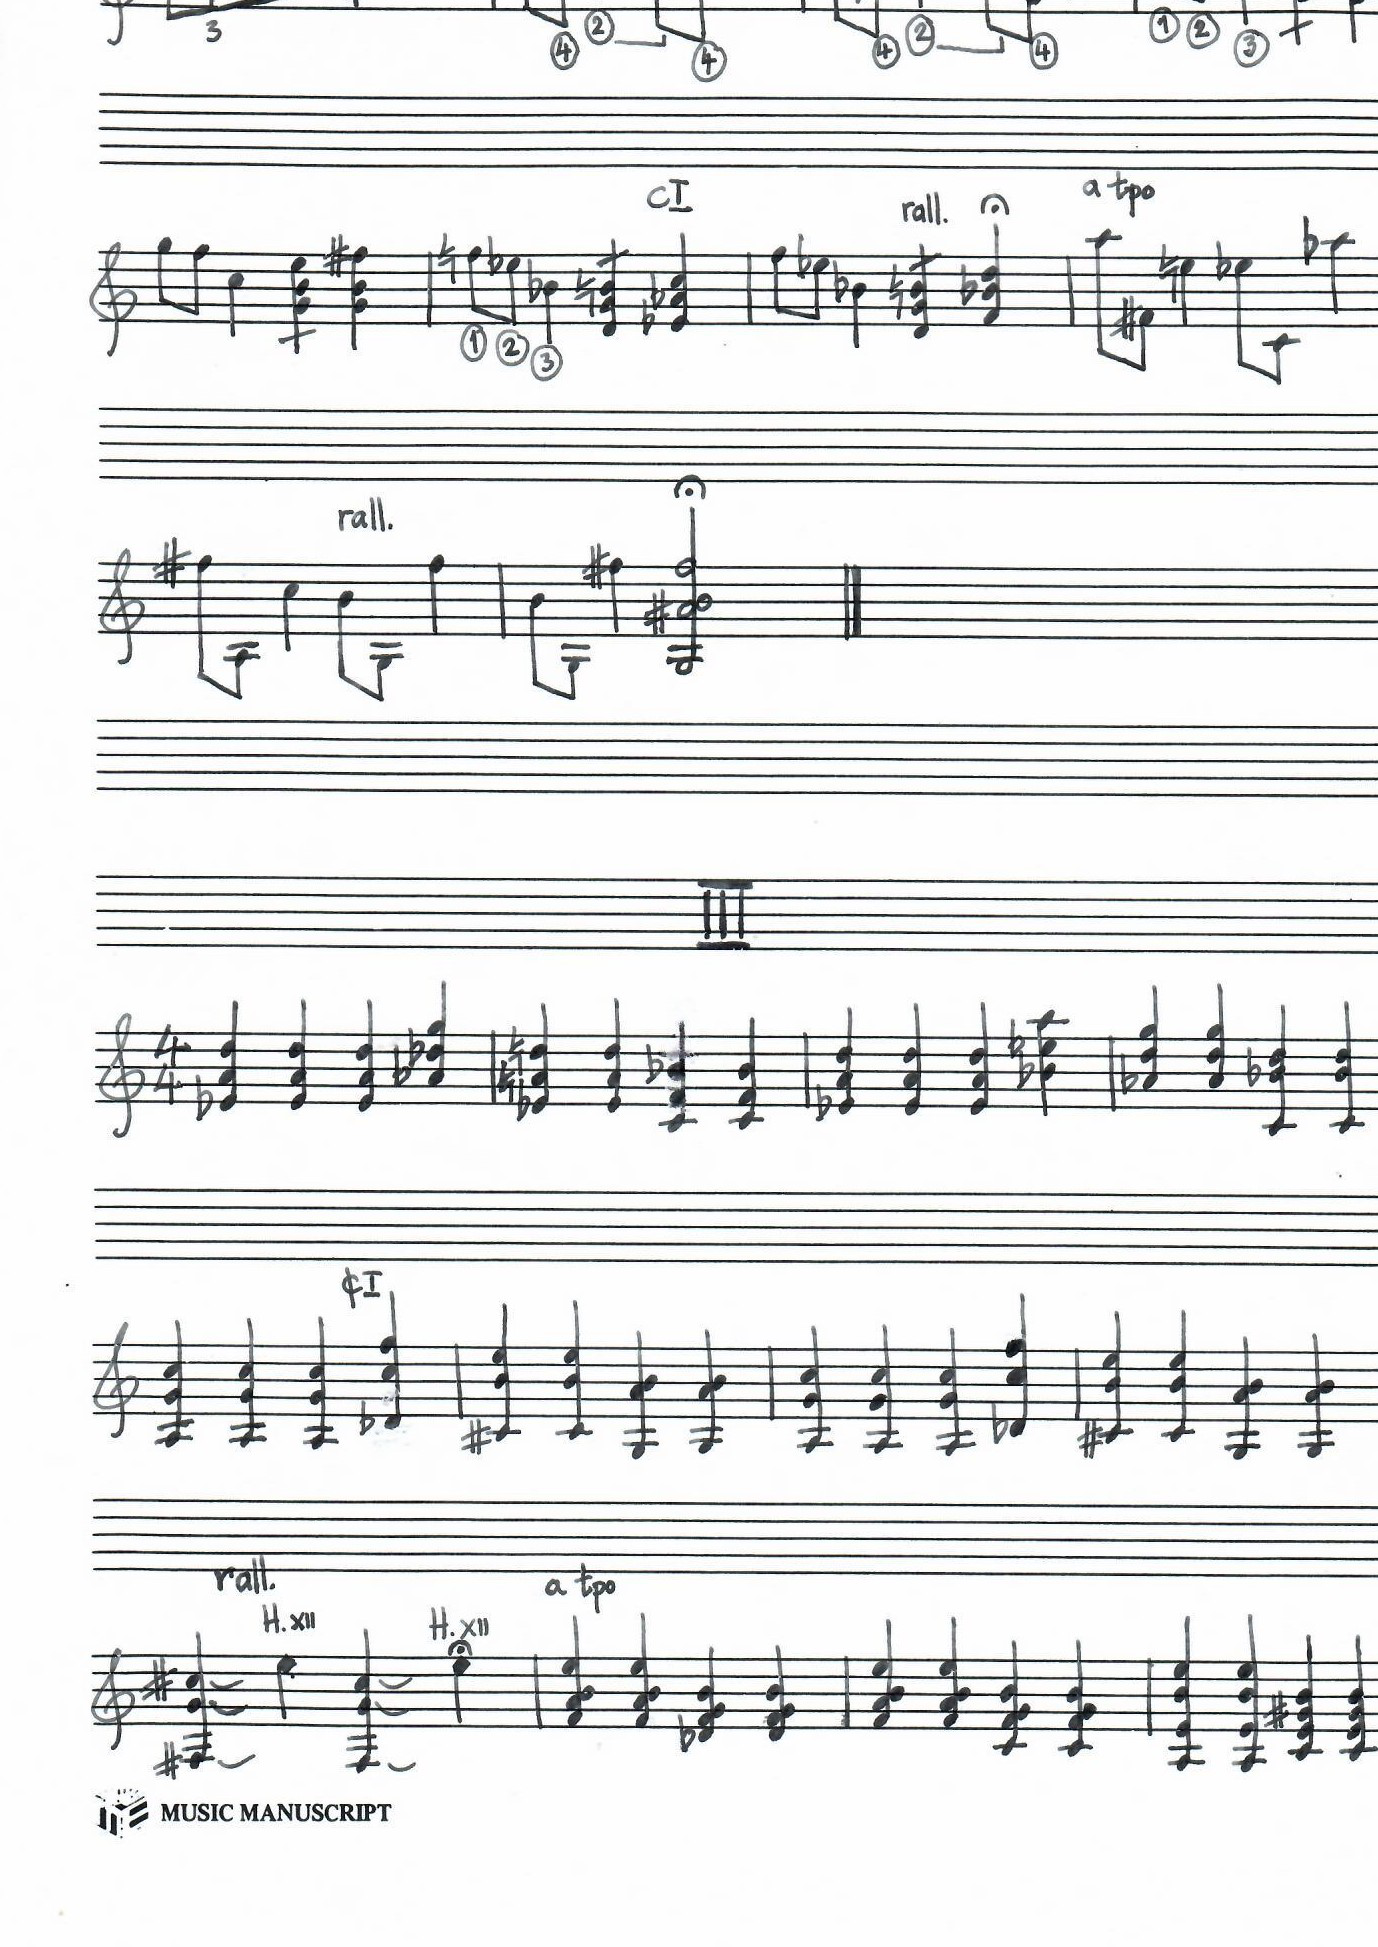 3 ④ ② ④ ④ ② ④ ① ② ③
CI rall. a tpo
① ② ③
rall.
III
4
4
¢I
rall. a tpo
H.XII H.XII
MUSIC MANUSCRIPT